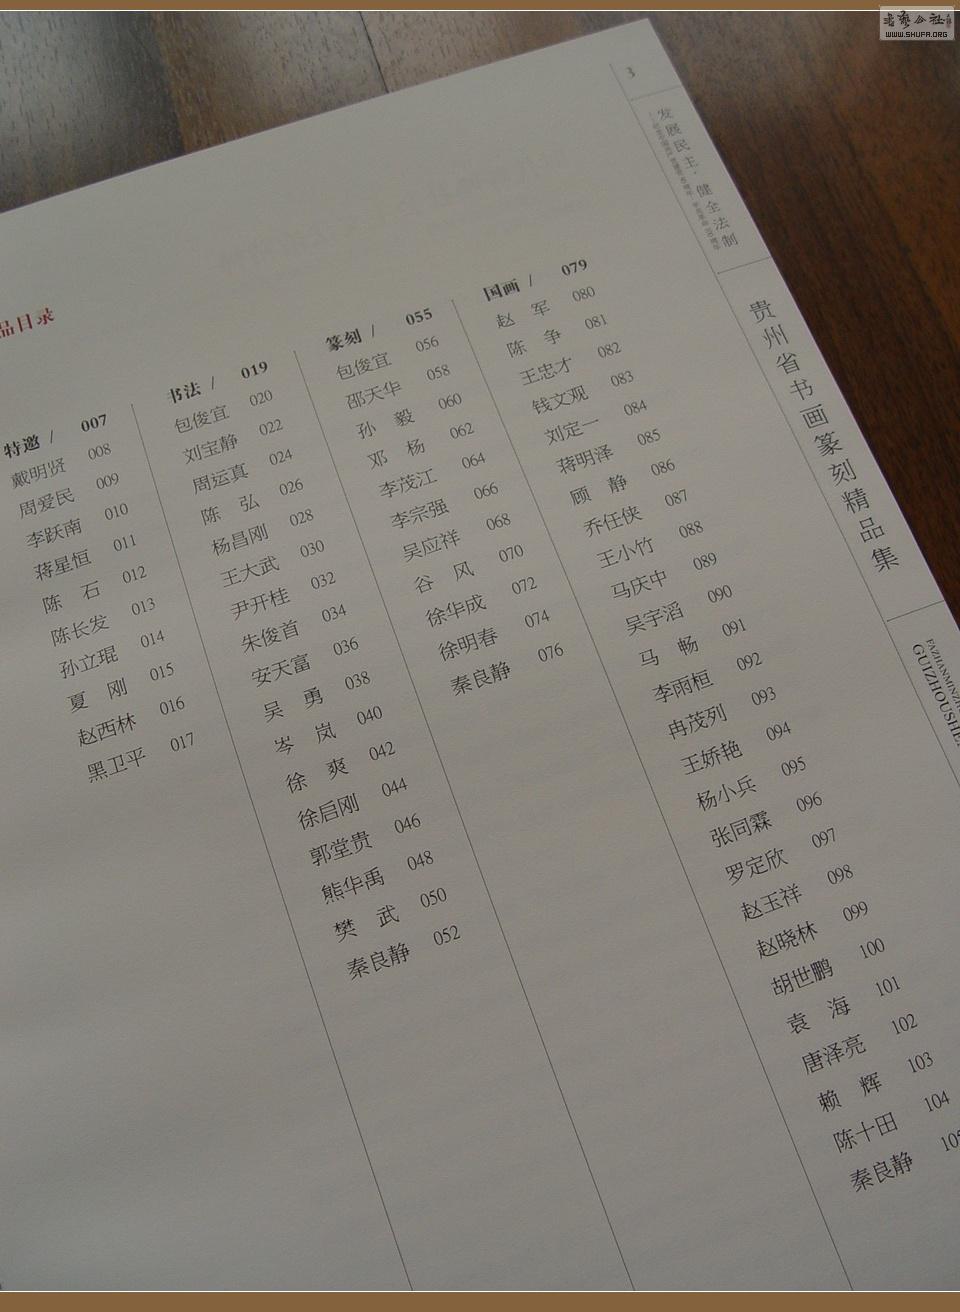 书艺公社
WWW.SHUFA.ORG
3
发展民主·健全法制
贵州省书画篆刻精品集
GUIZHOUSHE
品目录
特邀 / 007
戴明贤 008
周爱民 009
李跃南 010
蒋星恒 011
陈 石 012
陈长发 013
孙立琨 014
夏 刚 015
赵西林 016
黑卫平 017
书法 / 019
包俊宜 020
刘宝静 022
周运真 024
陈 弘 026
杨昌刚 028
王大武 030
尹开桂 032
朱俊首 034
安天富 036
吴 勇 038
岑 岚 040
徐 爽 042
徐启刚 044
郭堂贵 046
熊华禹 048
樊 武 050
秦良静 052
篆刻 / 055
包俊宜 056
邵天华 058
孙 毅 060
邓 杨 062
李茂江 064
李宗强 066
吴应祥 068
谷 风 070
徐华成 072
徐明春 074
秦良静 076
国画 / 079
赵 军 080
陈 争 081
王忠才 082
钱文观 083
刘定一 084
蒋明泽 085
顾 静 086
乔任侠 087
王小竹 088
马庆中 089
吴宇滔 090
马 畅 091
李雨桓 092
冉茂列 093
王娇艳 094
杨小兵 095
张同霖 096
罗定欣 097
赵玉祥 098
赵晓林 099
胡世鹏 100
袁 海 101
唐泽亮 102
赖 辉 103
陈十田 104
秦良静 105